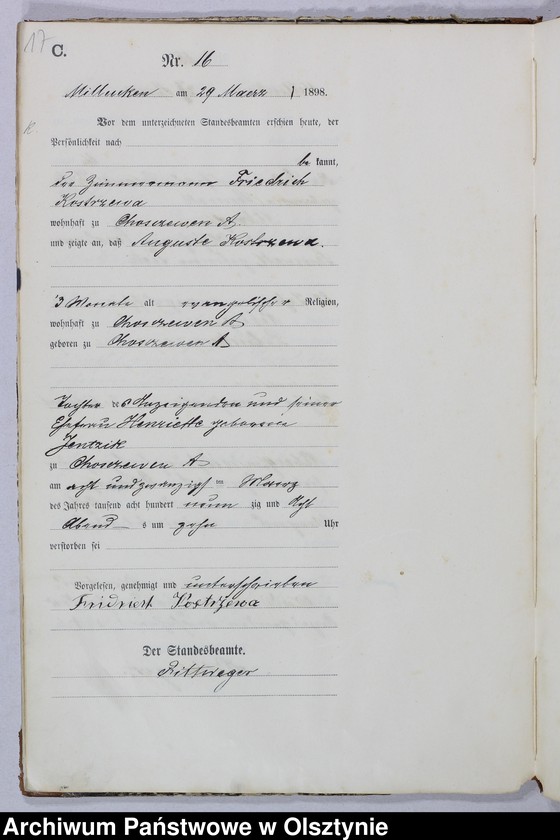 17
C.
Nr. 16
Millucken am 29 Maerz 1898.
Vor dem unterzeichneten Standesbeamten erschien heute, der
Persönlichkeit nach
be kannt,
der Zimmermann Friedrich
Kostrzewa
wohnhaft zu Choszewen A.
und zeigte an, daß Auguste Kostrzewa.
3 Monate alt evangelischer Religion,
wohnhaft zu Choszewen A
geboren zu Choszewen A
Tochter des Anzeigenden und seiner
Ehefrau Henriette geborene
Jentzik
zu Choszewen A
am acht und zwanzigsten Maerz
des Jahres tausend acht hundert neun zig und Acht
Abend s um zehn Uhr
verstorben sei
Vorgelesen, genehmigt und unterschrieben
Fridrich Kostrzewa
Der Standesbeamte.
Rittweger
Archiwum Państwowe w Olsztynie